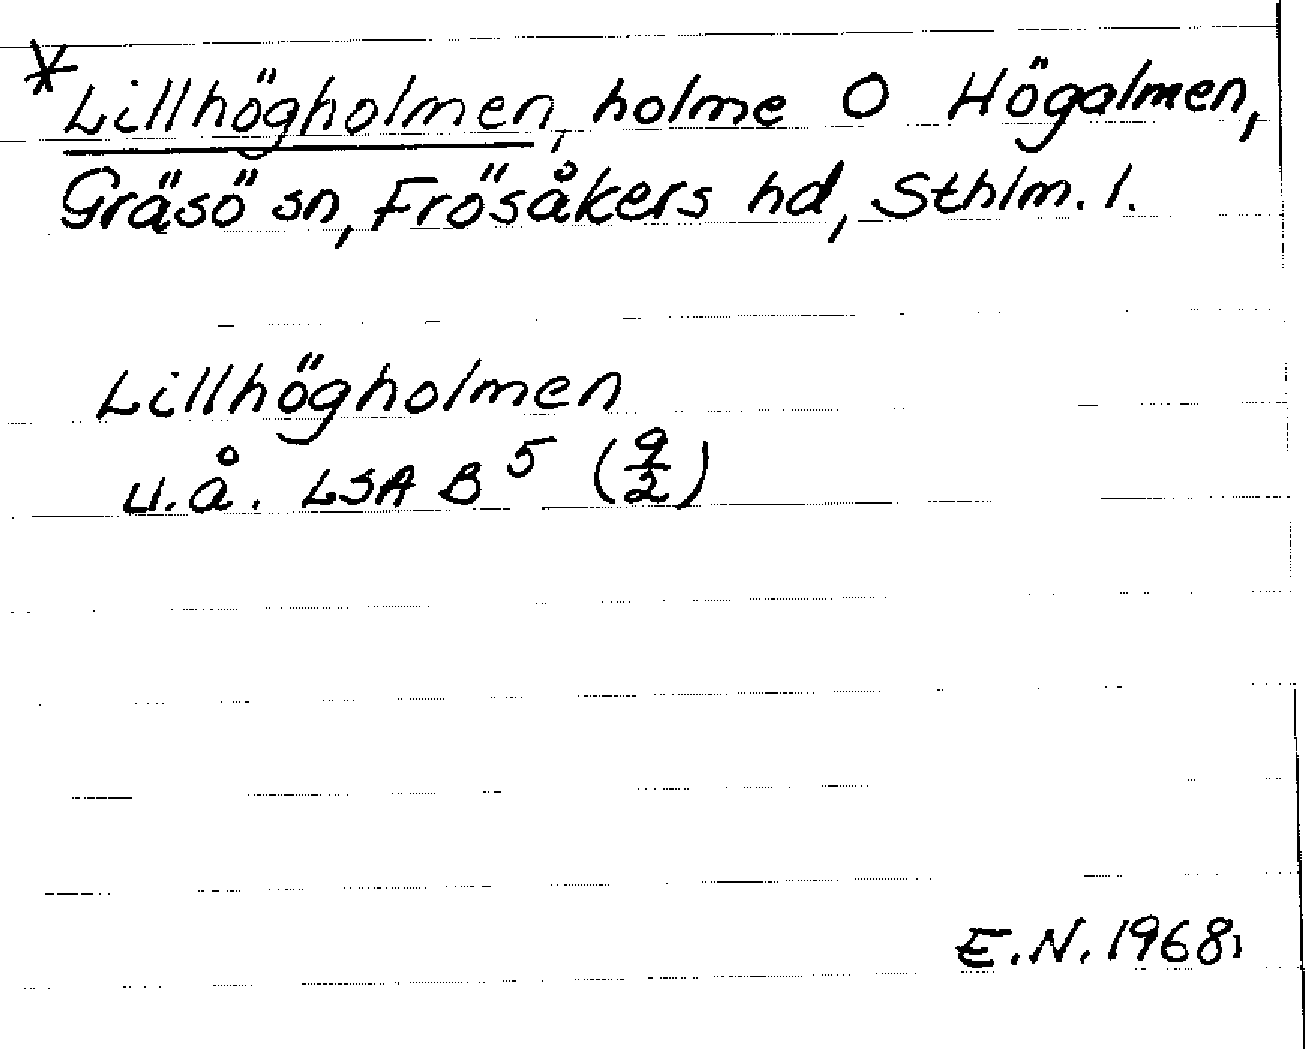 *Lillhögholmen, holme O Högalmen,
Gräsö sn, Frösåkers hd, Sthlm. l.
Lillhögholmen
u.å. LSA B⁵ (9/2)
E.N. 1968